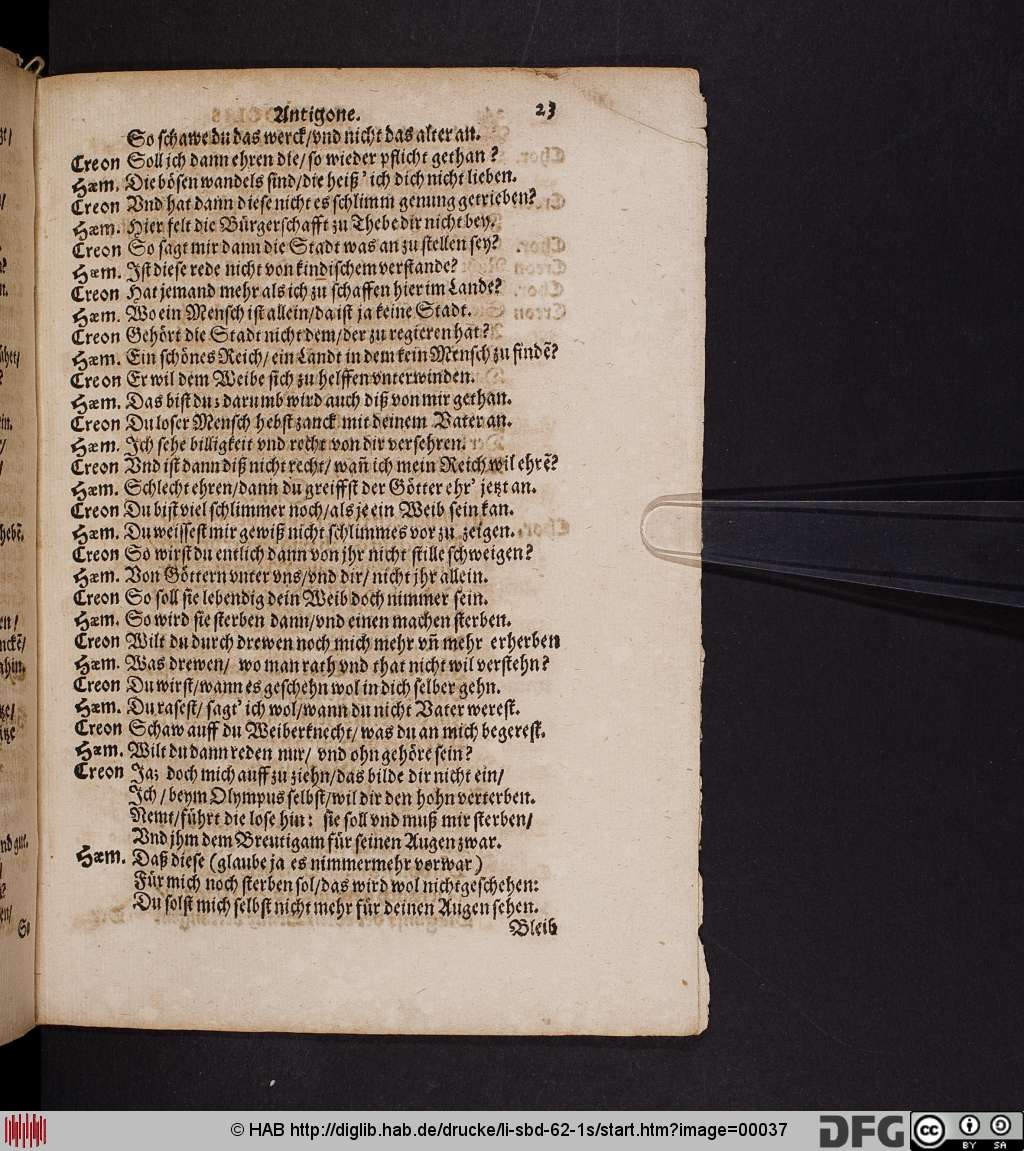 Antigone. 23
So schawe du das werck/vnd nicht das alter an.
Creon Soll ich dann ehren die/so wieder pflicht gethan?
Hæm. Die bösen wandels sind/die heiß' ich dich nicht lieben.
Creon Vnd hat dann diese nicht es schlimm genung getrieben?
Hæm. Hier felt die Bürgerschafft zu Thebe dir nicht bey.
Creon So sagt mir dann die Stadt was an zu stellen sey?
Hæm. Ist diese rede nicht von kindischem verstande?
Creon Hat jemand mehr als ich zu schaffen hier im Lande?
Hæm. Wo ein Mensch ist allein/da ist ja keine Stadt.
Creon Gehört die Stadt nicht dem/der zu regieren hat?
Hæm. Ein schönes Reich/ein Landt in dem kein Mensch zu findẽ?
Creon Er wil dem Weibe sich zu helffen vnterwinden.
Hæm. Das bist du; darumb wird auch diß von mir gethan.
Creon Du loser Mensch hebst zanck mit deinem Vater an.
Hæm. Ich sehe billigkeit vnd recht von dir versehren.
Creon Vnd ist dann diß nicht recht/wañ ich mein Reich wil ehrẽ?
Hæm. Schlecht ehren/dann du greiffst der Götter ehr' jetzt an.
Creon Du bist viel schlimmer noch/als je ein Weib sein kan.
Hæm. Du weissest mir gewiß nicht schlimmes vor zu zeigen.
Creon So wirst du entlich dann von jhr nicht stille schweigen?
Hæm. Von Göttern vnter vns/vnd dir/nicht jhr allein.
Creon So soll sie lebendig dein Weib doch nimmer sein.
Hæm. So wird sie sterben dann/vnd einen machen sterben.
Creon Wilt du durch drewen noch mich mehr vñ mehr erherben
Hæm. Was drewen/ wo man rath vnd that nicht wil verstehn?
Creon Du wirst/wann es geschehn wol in dich selber gehn.
Hæm. Du rasest/sagt' ich wol/wann du nicht Vater werest.
Creon Schaw auff du Weiberknecht/was du an mich begerest.
Hæm. Wilt du dann reden nur/ vnd ohn gehöre sein?
Creon Ja; doch mich auff zu ziehn/das bilde dir nicht ein/
Ich/beym Olympus selbst/wil dir den hohn verterben.
Nemt/führt die lose hin: sie soll vnd muß mir sterben/
Vnd jhm dem Breutigam für seinen Augen zwar.
Hæm. Daß diese (glaube ja es nimmermehr vorwar)
Für mich noch sterben sol/das wird wol nicht geschehen:
Du solst mich selbst nicht mehr für deinen Augen sehen.
Bleib
© HAB http://diglib.hab.de/drucke/li-sbd-62-1s/start.htm?image=00037
DFG
cc BY SA